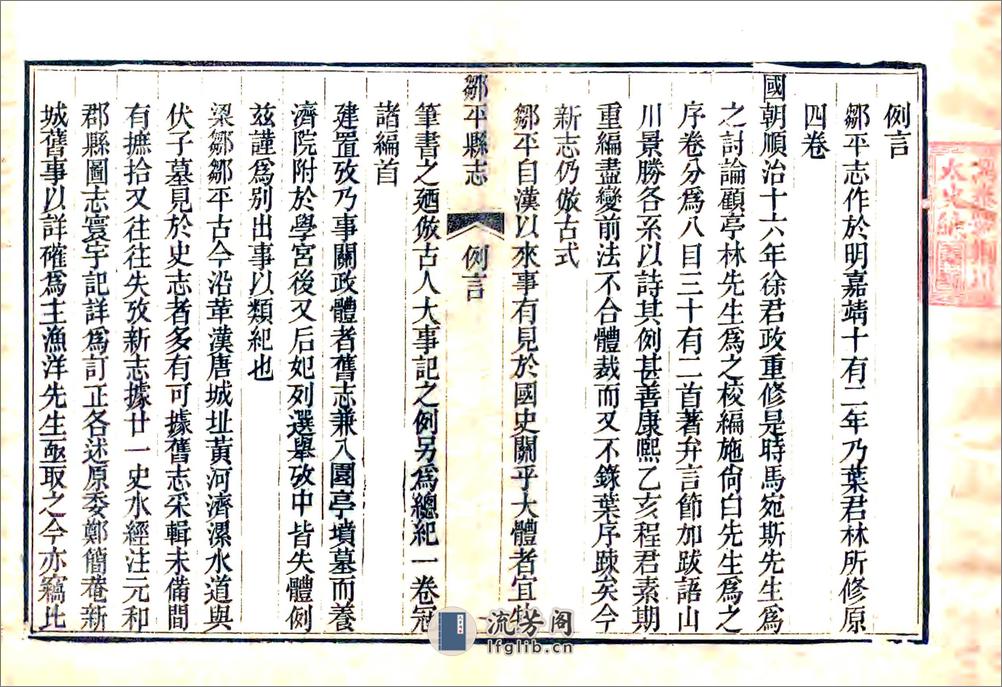 例言
鄒平志作於明嘉靖十有二年乃葉君林所修原
四卷
國朝順治十六年徐君政重修是時馬宛斯先生爲
之討論顧亭林先生爲之校編施尙白先生爲之
序卷分爲八目三十有二首著弁言節加跋語山
川景勝各系以詩其例甚善康熙乙亥程君素期
重編盡變前法不合體裁而又不錄葉序疎矣今
新志仍倣古式
鄒平自漢以來事有見於國史關乎大體者宜特
鄒平縣志
例言
筆書之廼倣古人大事記之例另爲總紀一卷冠
諸編首
建置攷乃事關政體者舊志兼入園亭墳墓而養
濟院附於學宮後又后妃列選舉攷中皆失體例
茲謹爲別出事以類紀也
梁鄒鄒平古今沿革漢唐城址黃河濟漯水道與
伏子墓見於史志者多有可據舊志采輯未備間
有摭拾又往往失攷新志據廿一史水經注元和
郡縣圖志寰宇記詳爲訂正各述原委鄭簡菴新
城舊事以詳確爲主漁洋先生亟取之今亦竊比
流芳阁
lfglib.cn